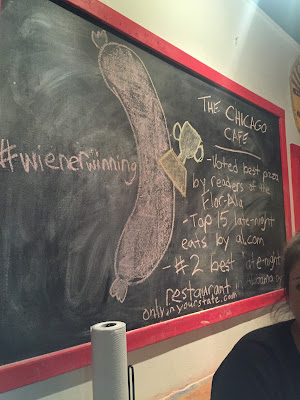 THE CHICAGO
CAFE
#wienerwinning
-Voted best pizza
by readers of the
Flor-Ala
-Top 15 late-night
eats by al.com
-#2 best late-night
restaurant in Alabama by
onlyinyourstate.com